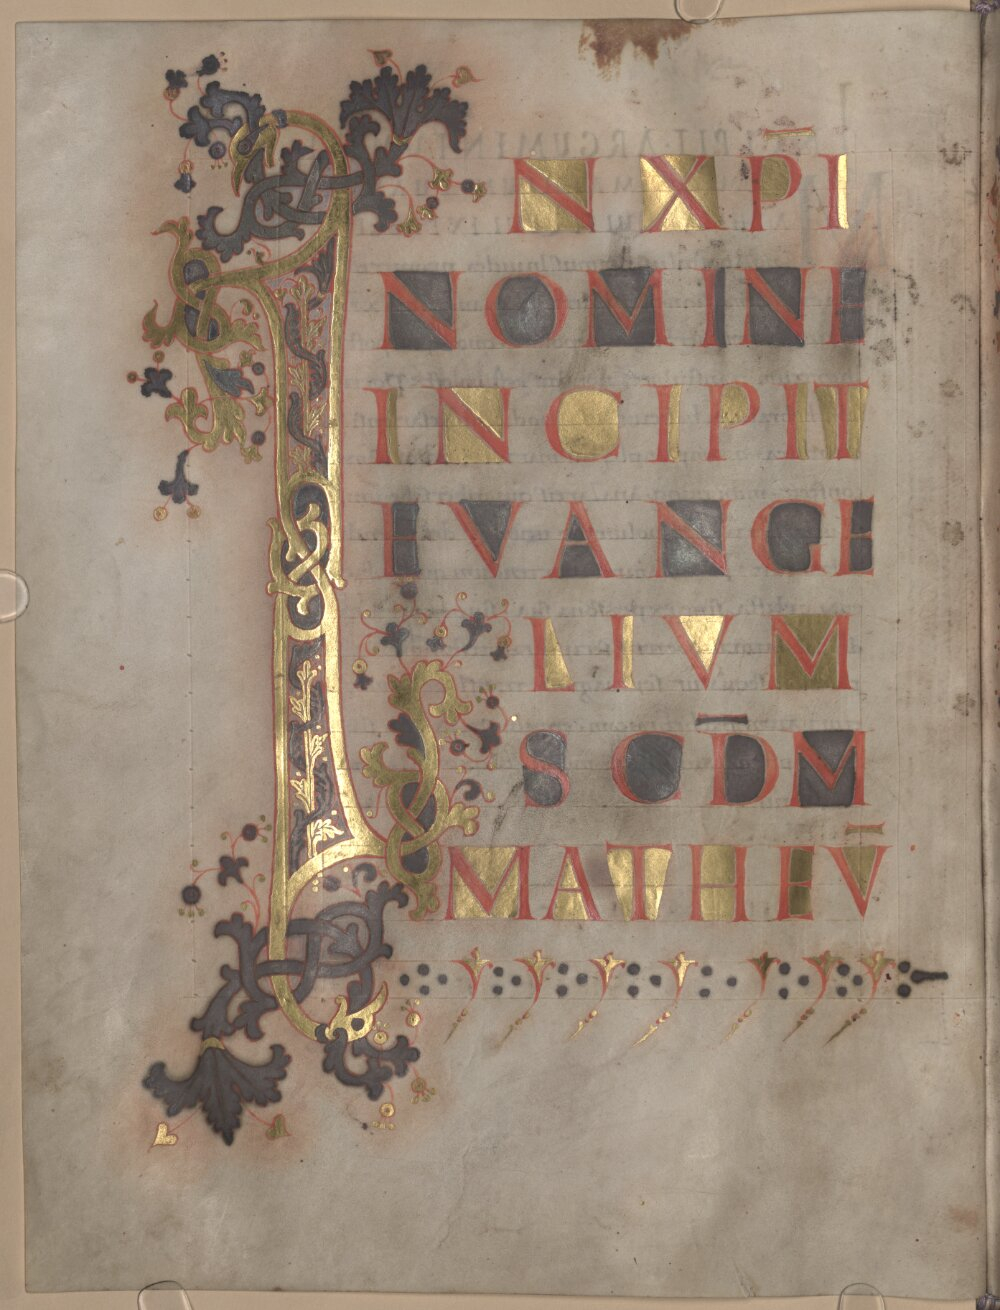 IN XP̄I
NOMINE
INCIPIT
EVANGE
LIVM
S̄CD̄M
MATHEV̄